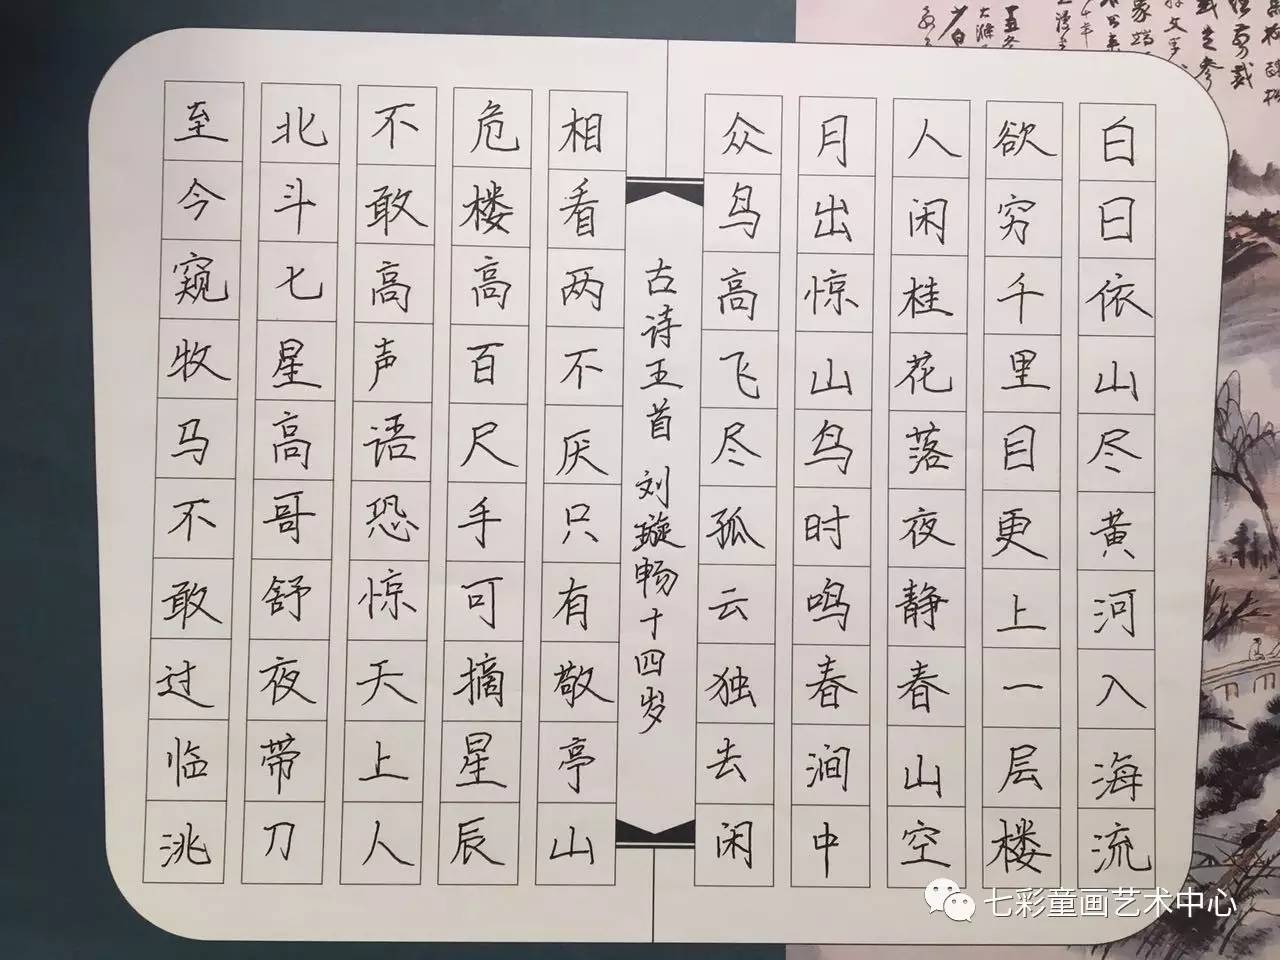 白日依山尽黄河入海流
欲穷千里目更上一层楼
人闲桂花落夜静春山空
月出惊山鸟时鸣春涧中
众鸟高飞尽孤云独去闲
古诗五首 刘璇畅十四岁
相看两不厌只有敬亭山
危楼高百尺手可摘星辰
不敢高声语恐惊天上人
北斗七星高哥舒夜带刀
至今窥牧马不敢过临洮
七彩童画艺术中心